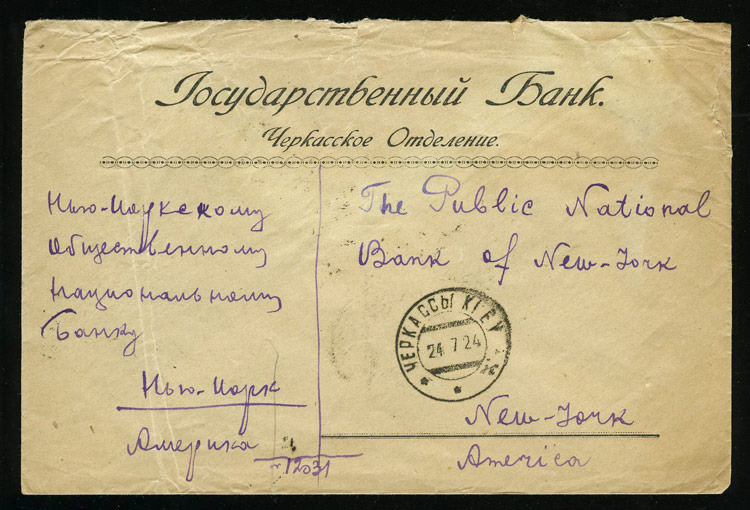 Государственный Банк.
Черкасское Отделение.
Нью-Иоркскому
Общественному
Национальному
Банку
Нью-Иорк
Америка
The Public National
Bank of New-York
ЧЕРКАССЫ КІЕV
24 7 24
New-York
America
12031